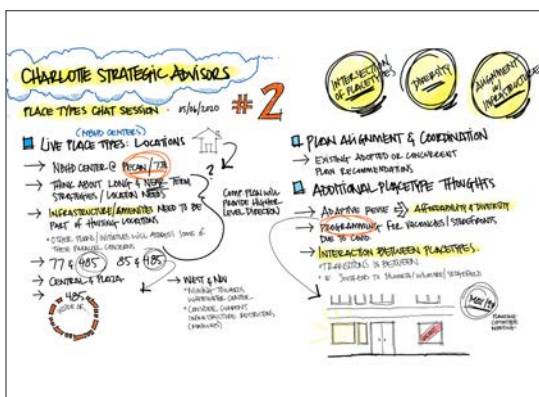 CHARLOTTE STRATEGIC ADVISORS
PLACE TYPES CHAT SESSION - 05/06/2020
#2
INTERSECTION OF PLACETYPES
DIVERSITY
ALIGNMENT w/ INFRASTRUCTURE
(NBHD CENTERS)
LIVE PLACE TYPES: LOCATIONS
→ NBHD CENTER @ PECAN / 7TH
→ THINK ABOUT LONG & NEAR-TERM
STRATEGIES / LOCATION NEEDS
→ INFRASTRUCTURE/AMENITIES NEED TO BE
PART OF HOUSING LOCATIONS
• OTHER PLANS/INITIATIVES WILL ADDRESS SOME OF
THESE PARALLEL CONCERNS
→ 77 & 485 85 & 485
→ CENTRAL & PLAZA
→ 485
INSIDE OR
?
COMP PLAN WILL
PROVIDE HIGHER
LEVEL DIRECTION
→ WEST & NW
• MOVING TOWARDS
WHITEWATER CENTER
• CONSIDER CURRENT
INFRASTRUCTURE RESTRICTIONS
PLAN ALIGNMENT & COORDINATION
→ EXISTING ADOPTED OR CONCURRENT
PLAN RECOMMENDATIONS
ADDITIONAL PLACETYPE THOUGHTS
→ ADAPTIVE REUSE ⇒ AFFORDABILITY & DIVERSITY
→ PROGRAMMING FOR VACANCIES/STOREFRONTS
DUE TO COVID
→ INTERACTION BETWEEN PLACETYPES
• TRANSITIONS IN BETWEEN
MAY 19
PLANNING
COMMITTEE
MEETING